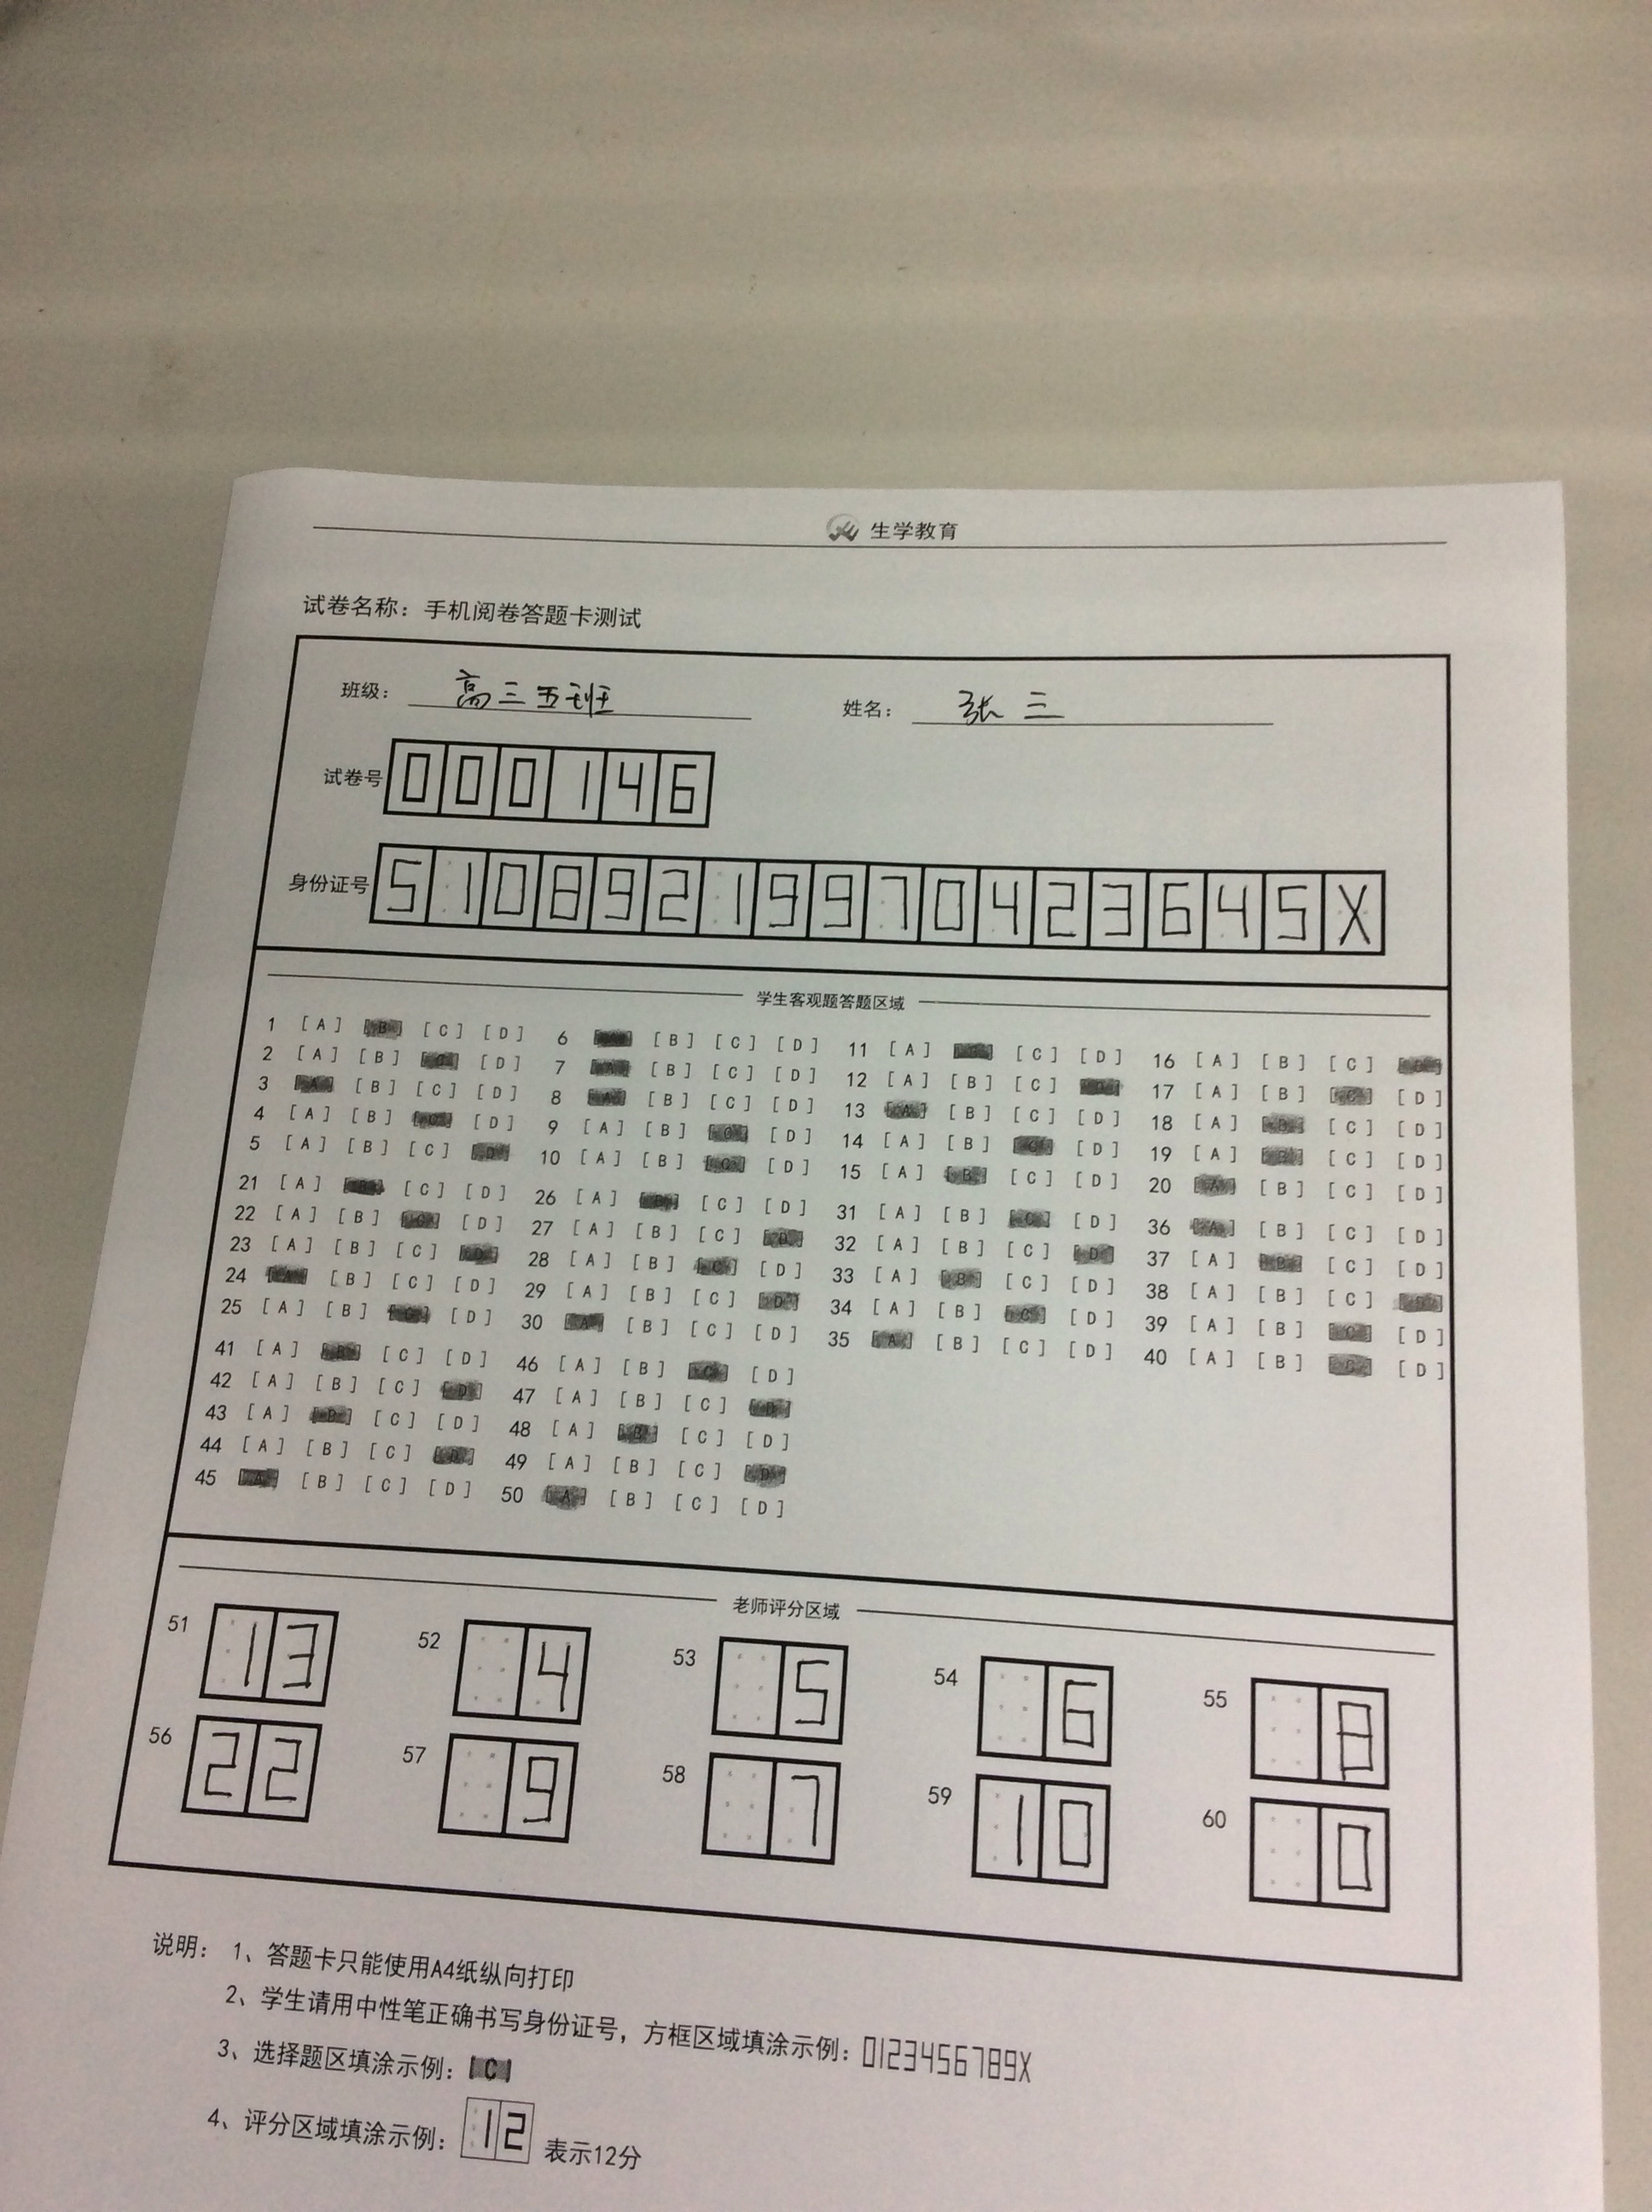 生学教育
试卷名称：手机阅卷答题卡测试
班级：高三五班 姓名：张三
试卷号 000146
身份证号 51089219970423645X
学生客观题答题区域
1 [A] [B] [C] [D] 6 [A] [B] [C] [D] 11 [A] [B] [C] [D] 16 [A] [B] [C] [D]
2 [A] [B] [C] [D] 7 [A] [B] [C] [D] 12 [A] [B] [C] [D] 17 [A] [B] [C] [D]
3 [A] [B] [C] [D] 8 [A] [B] [C] [D] 13 [A] [B] [C] [D] 18 [A] [B] [C] [D]
4 [A] [B] [C] [D] 9 [A] [B] [C] [D] 14 [A] [B] [C] [D] 19 [A] [B] [C] [D]
5 [A] [B] [C] [D] 10 [A] [B] [C] [D] 15 [A] [B] [C] [D] 20 [A] [B] [C] [D]
21 [A] [B] [C] [D] 26 [A] [B] [C] [D] 31 [A] [B] [C] [D] 36 [A] [B] [C] [D]
22 [A] [B] [C] [D] 27 [A] [B] [C] [D] 32 [A] [B] [C] [D] 37 [A] [B] [C] [D]
23 [A] [B] [C] [D] 28 [A] [B] [C] [D] 33 [A] [B] [C] [D] 38 [A] [B] [C] [D]
24 [A] [B] [C] [D] 29 [A] [B] [C] [D] 34 [A] [B] [C] [D] 39 [A] [B] [C] [D]
25 [A] [B] [C] [D] 30 [A] [B] [C] [D] 35 [A] [B] [C] [D] 40 [A] [B] [C] [D]
41 [A] [B] [C] [D] 46 [A] [B] [C] [D]
42 [A] [B] [C] [D] 47 [A] [B] [C] [D]
43 [A] [B] [C] [D] 48 [A] [B] [C] [D]
44 [A] [B] [C] [D] 49 [A] [B] [C] [D]
45 [A] [B] [C] [D] 50 [A] [B] [C] [D]
老师评分区域
51 13 52 4 53 5 54 6 55 8
56 22 57 9 58 7 59 10 60 0
说明：1、答题卡只能使用A4纸纵向打印
2、学生请用中性笔正确书写身份证号，方框区域填涂示例：0123456789X
3、选择题区填涂示例：[C]
4、评分区域填涂示例：12 表示12分